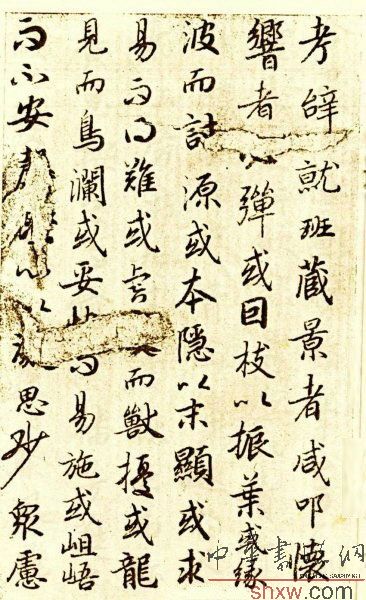 考辭就班藏景者咸叩懷
響者彈或因枝以振葉或緣
波而討源或本隱以末顯或求
易而得難或虎而獸擾或龍
見而鳥瀾或妥而易施或岨峿
而不安心以思眇眾慮
shxw.com